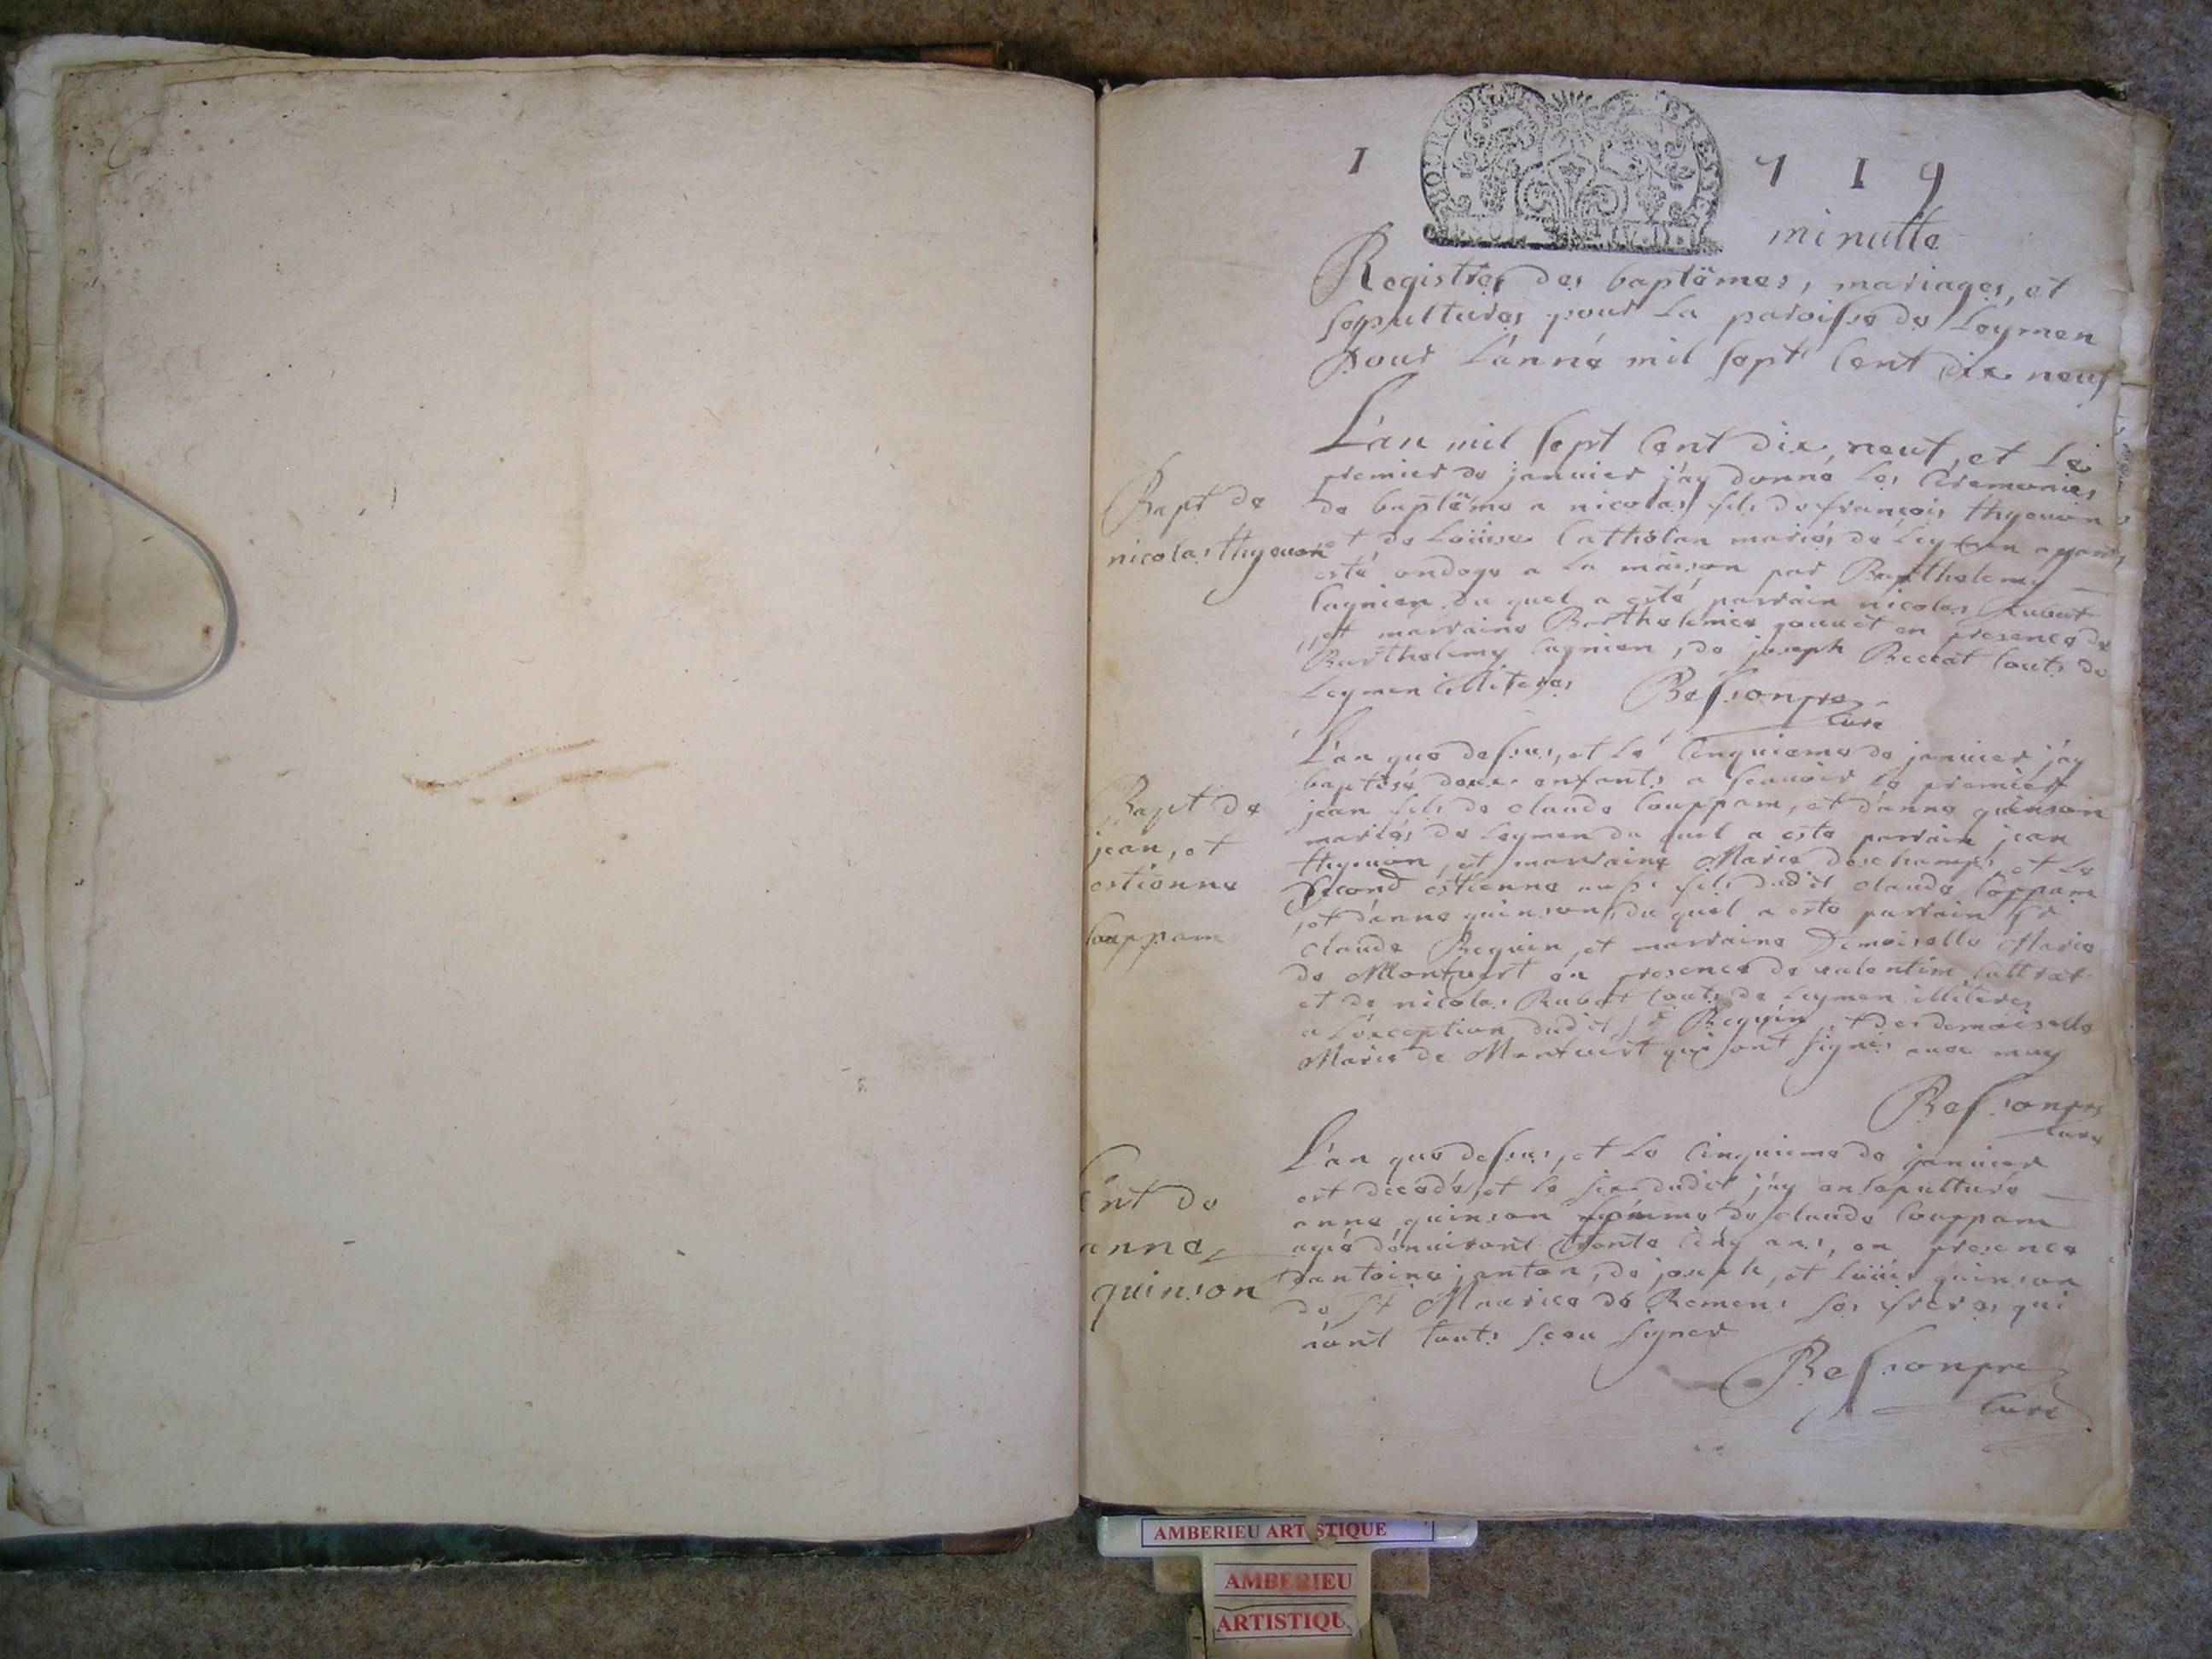 1 7 1 9
minutte
Registres des baptëmes, mariages, et
sepultures pour la paroisse de Leymen
pour l'anné mil sept cent dix neuf
L'an mil sept cent dix neuf, et le
premier de januier j'ay donné les ceremonies
de baptëme a nicolas fils de françois thyouion
et de Loüise Catthelan mariés de Leymen ayant
esté ondoye a la maison par Barthelemy
Cagnien du quel a esté parrain nicolas Rubat
et marraine Barthelemie en presence de
Barthelemy Cagnien, de joseph touts de
Leymen illiteres Bessonpre
Curé
Bapt de
nicolas thyouion
L'an que dessus, et le cinquieme de januier j'ay
baptisé deux enfants a scauoir le premier
jean fils de claude Couppam, et d'anne quinson
mariés de Leymen du quel a este parrain jean
thyouion, et marraine Marie deschamps, et le
second estienne aussi fils dudit claude Coppam
et d'anne quinson, du quel a este parrain Sr
claude Reguin, et marraine Demoiselle Marie
de Montvert en presence de valentin
et de nicolas Rubat touts de Leymen illiteres
a l'exception dudit sr Reguin, et des demoiselle
Marie de Montuert qui sont signés auec moy
Bessonpre
Curé
Bapt de
jean, et
estienne
Couppam
L'an que dessus, et le cinquieme de januier
est decedé, et le six dudit j'ay ensepulture
anne quinson femme de claude Couppam
agée d'enuiront trente cinq ans, en presence
d'antoine janton, de joseph, et loüis quinson
de St Maurice de Remens ses freres qui
n'ont touts sceu signer
Bessonpre
Curé
Ent de
anne
quinson
AMBERIEU ARTISTIQUE
AMBERIEU
ARTISTIQU